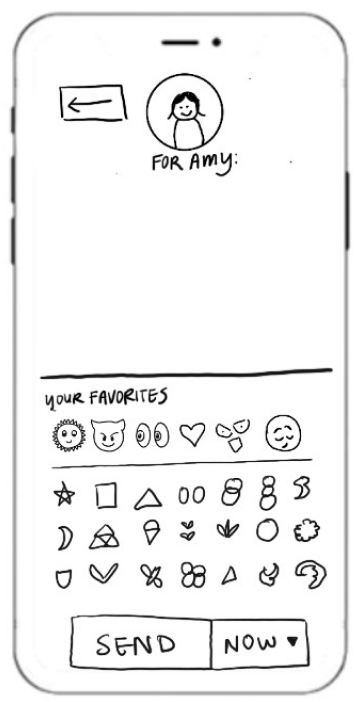 FOR AMY:
YOUR FAVORITES
SEND
NOW ▼